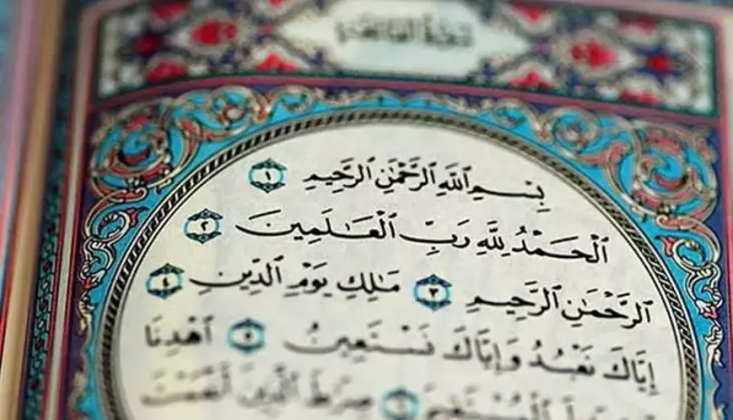 سورة الفاتحة
بِسْمِ ٱللَّهِ ٱلرَّحْمَٰنِ ٱلرَّحِيمِ ١
ٱلْحَمْدُ لِلَّهِ رَبِّ ٱلْعَٰلَمِينَ ٢
ٱلرَّحْمَٰنِ ٱلرَّحِيمِ ٣ مَٰلِكِ يَوْمِ ٱلدِّينِ ٤
إِيَّاكَ نَعْبُدُ وَإِيَّاكَ نَسْتَعِينُ ٥ ٱهْدِنَا
ٱلْمُسْتَقِيمَ ٦ صِرَٰطَ ٱلَّذِينَ أَنْعَمْتَ